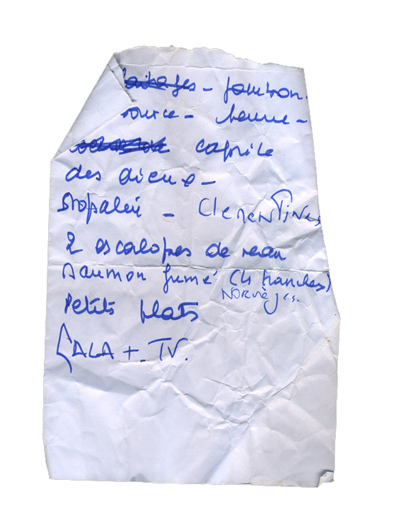 laitages - jambon.
beurre -
caprice
des dieux -
Sopalin - Clementines
2 escalopes de veau
saumon fumé (4 tranches)
Norvège.
Petits plats
GALA + TV.